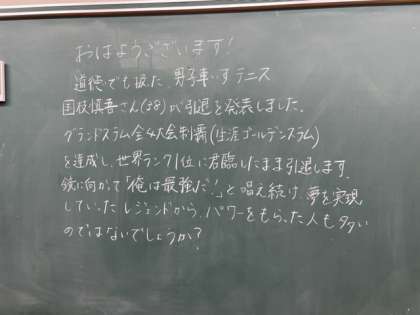 おはようございます!
道徳でも扱った、男子車いすテニス
国枝慎吾さん(38)が引退を発表しました。
グランドスラム全4大会制覇(生涯ゴールデンスラム)
を達成し、世界ランク1位に君臨したまま引退します。
鏡に向かって「俺は最強だ!」と唱え続け、夢を実現
していったレジェンドから、パワーをもらった人も多い
のではないでしょうか?